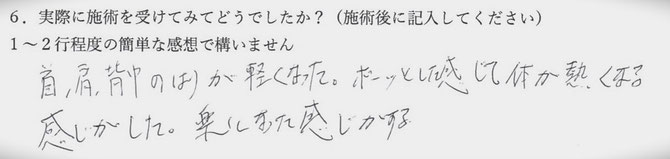 6．実際に施術を受けてみてどうでしたか？（施術後に記入してください）
1～2行程度の簡単な感想で構いません
首,肩,背中のはりが軽くなった。ボーッとした感じで体が熱くなる
感じがした。楽になった感じがする